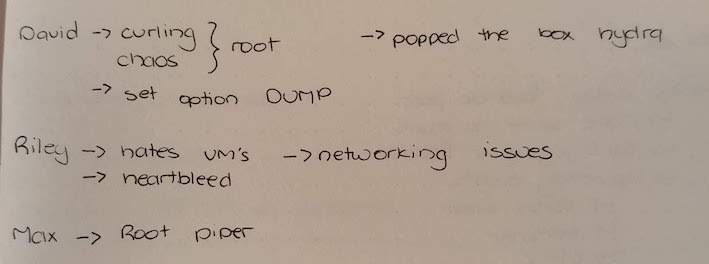 David -> curling } root -> popped the box hydra
chaos
-> set option DUMP
Riley -> hates VM's -> networking issues
-> heartbleed
Max -> Root piper